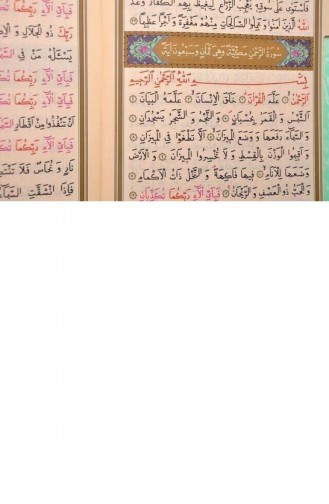 فَاسْتَوٰى عَلٰى سُوقِهِ يُعْجِبُ الزُّرَّاعَ لِيَغِيظَ بِهِمُ الْكُفَّارَ وَعَدَ
اللّٰهُ الَّذِينَ اٰمَنُوا وَ عَمِلُوا الصَّالِحَاتِ مِنْهُمْ مَغْفِرَةً وَ اَجْرًا عَظِيمًا
سُورَةُ الرَّحْمٰنِ مَكِّيَّةٌ وَهِيَ ثَمَانٍ وَسَبْعُونَ اٰيَةً
بِسْمِ اللّٰهِ الرَّحْمٰنِ الرَّحِيمِ
اَلرَّحْمٰنُ عَلَّمَ الْقُرْاٰنَ خَلَقَ الْاِنْسَانَ عَلَّمَهُ الْبَيَانَ
اَلشَّمْسُ وَ الْقَمَرُ بِحُسْبَانٍ وَ النَّجْمُ وَ الشَّجَرُ يَسْجُدَانِ
وَ السَّمَاءَ رَفَعَهَا وَ وَضَعَ الْمِيزَانَ اَلَّا تَطْغَوْا فِي الْمِيزَانِ
وَ اَقِيمُوا الْوَزْنَ بِالْقِسْطِ وَ لَا تُخْسِرُوا الْمِيزَانَ وَ الْاَرْضَ
وَضَعَهَا لِلْاَنَامِ فِيهَا فَاكِهَةٌ وَ النَّخْلُ ذَاتُ الْاَكْمَامِ
وَ الْحَبُّ ذُو الْعَصْفِ وَ الرَّيْحَانُ فَبِاَيِّ اٰلَاءِ رَبِّكُمَا تُكَذِّبَانِ
فَبِاَيِّ اٰلَاءِ رَبِّكُمَا
رَبِّكَ ذُو الْجَلَالِ وَ
يَسْـَٔلُهُ مَنْ فِي
فَبِاَيِّ اٰلَاءِ رَبِّكُمَا
فَبِاَيِّ اٰلَاءِ رَبِّكُمَا
اَنْ تَنْفُذُوا مِنْ اَقْطَارِ
فَبِاَيِّ اٰلَاءِ رَبِّكُمَا
نَارٍ وَ نُحَاسٌ فَلَا
فَاِذَا انْشَقَّتِ